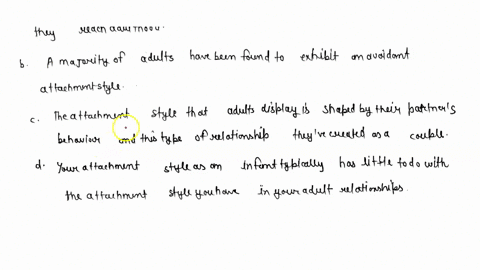 they reach adulthood.
b. A majority of adults have been found to exhibit an avoidant
attachment style.
c. The attachment style that adults display is shaped by their partner's
behaviour and this type of relationship they've created as a couple.
d. Your attachment style as an infant typically has little to do with
the attachment style you have in your adult relationships.